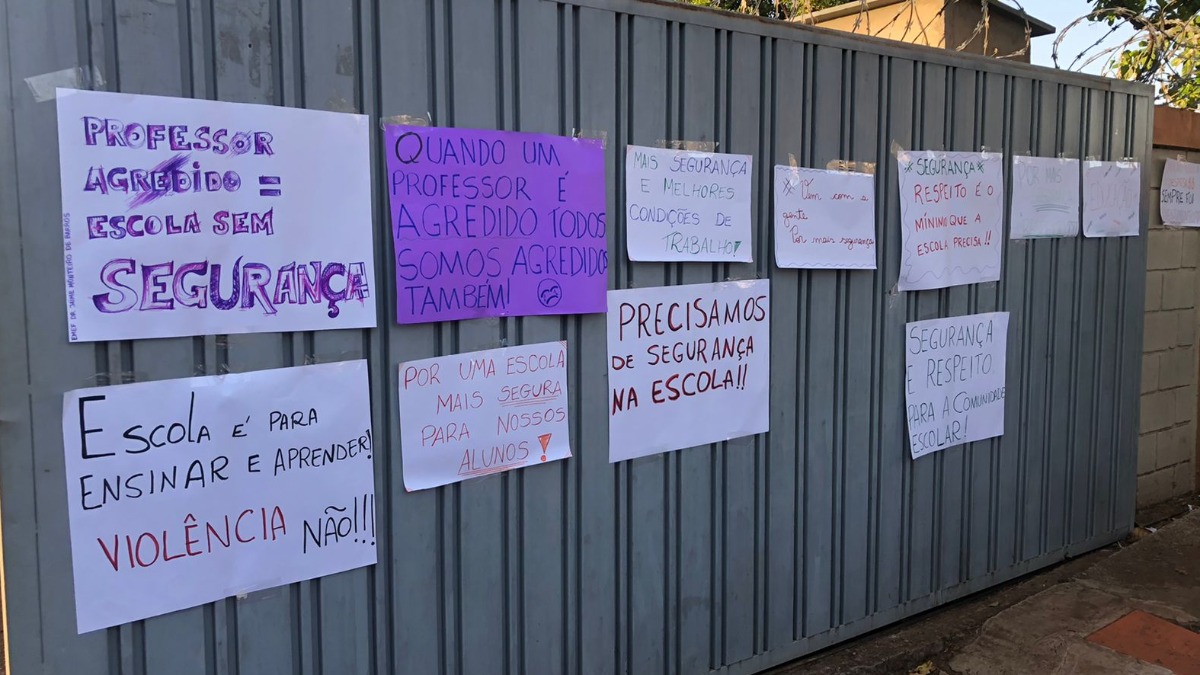 PROFESSOR
AGREDIDO =
ESCOLA SEM
SEGURANÇA
EMEF DR. JAIME MONTEIRO DE BARROS
QUANDO UM
PROFESSOR É
AGREDIDO TODOS
SOMOS AGREDIDOS
TAMBÉM!
MAIS SEGURANÇA
E MELHORES
CONDIÇÕES DE
TRABALHO!
* Vem com a
gente
Por mais segurança
*SEGURANÇA*
RESPEITO É O
MÍNIMO QUE A
ESCOLA PRECISA!!
POR MAIS
SEMPRE FOI
ESCOLA É PARA
ENSINAR E APRENDER!
VIOLÊNCIA NÃO!!!
POR UMA ESCOLA
MAIS SEGURA
PARA NOSSOS
ALUNOS!
PRECISAMOS
DE SEGURANÇA
NA ESCOLA!!
SEGURANÇA
E RESPEITO
PARA A COMUNIDADE
ESCOLAR!